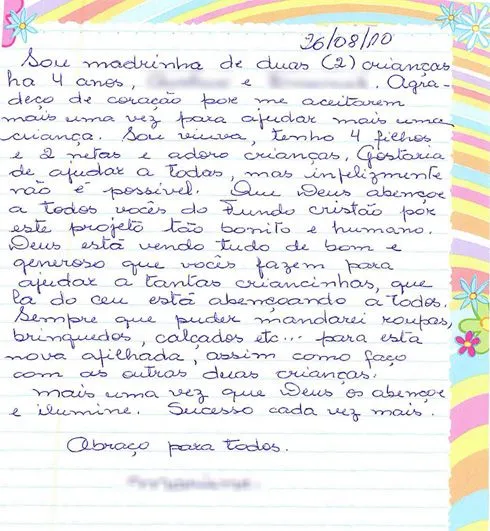 26/08/10
Sou madrinha de duas (2) crianças
ha 4 anos, e . Agra-
deço de coração por me aceitarem
mais uma vez para ajudar mais uma
criança. Sou viuva, tenho 4 filhos
e 2 netas e adoro crianças. Gostaria
de ajudar a todas, mas infelizmente
não é possivel. Que Deus abençoe
a todos vocês do Fundo cristão por
este projeto tão bonito e humano.
Deus está vendo tudo de bom e
generoso que vocês fazem para
ajudar a tantas criancinhas, que
la do ceu está abençoando a todos.
Sempre que puder mandarei roupas,
brinquedos, calçados etc... para esta
nova afilhada, assim como faço
com as outras duas crianças.
mais uma vez que Deus os abençoe
e ilumine. Sucesso cada vez mais.
Abraço para todos.